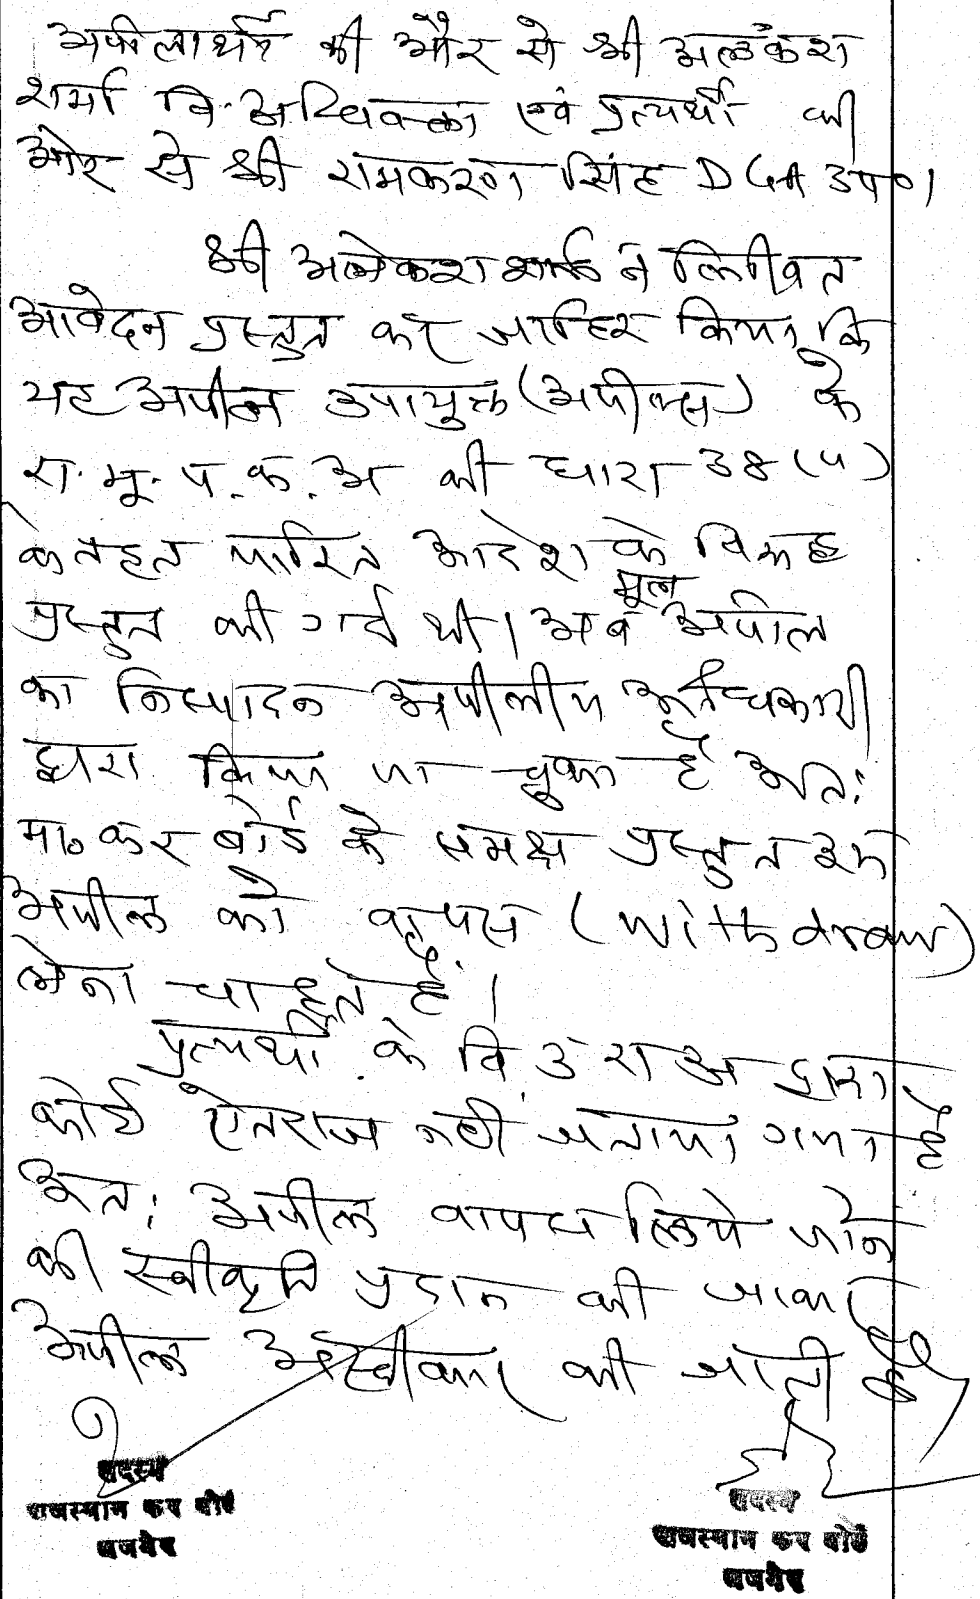 अपीलार्थी की और से श्री अलकेश
शर्मा वि. अधिवक्ता एवं प्रत्यर्थी की
ओर से श्री रामकरण सिंह DGA उप०।
श्री अलकेश शर्मा ने लिखित
आवेदन प्रस्तुत कर जाहिर किया कि
यह अपील उपायुक्त (अपील्स) के
रा. मू. प. क. अ की धारा 38 (4)
के तहत पारित आदेश के विरूद्ध
प्रस्तुत की गई थी। अब मूल अपील
का निष्पादन अपीलीय अधिकारी
द्वारा किया जा चुका है अत:
मा० कर बोर्ड के समक्ष प्रस्तुत इस
अपील को वापस (withdraw)
लेना चाहते है।
प्रत्यर्थी के वि. उ रा अ द्वारा
कोई ऐतराज नही जताया गया है
अत: अपील वापस लिये जाने
की स्वीकृति प्रदान की जाकर
अपील अस्वीकार की जाती है
सदस्य
राजस्थान कर बोर्ड
अजमेर
सदस्य
राजस्थान कर बोर्ड
अजमेर